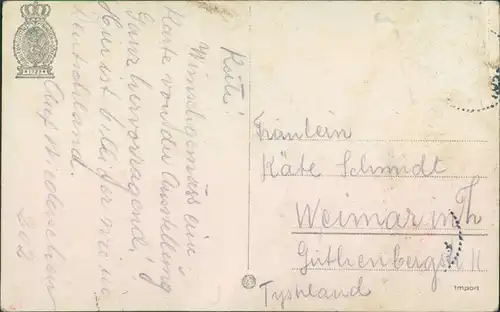 Käte!
Wunschgemäss ein
Karte von der Ausstellung
Ganz hervorragend!
Hier ist
Deutschland.
Auf Wiedersehen
Fräulein
Käte Schmidt
Weimar in Th
Guthenbergstr 11
Tyskland
Import